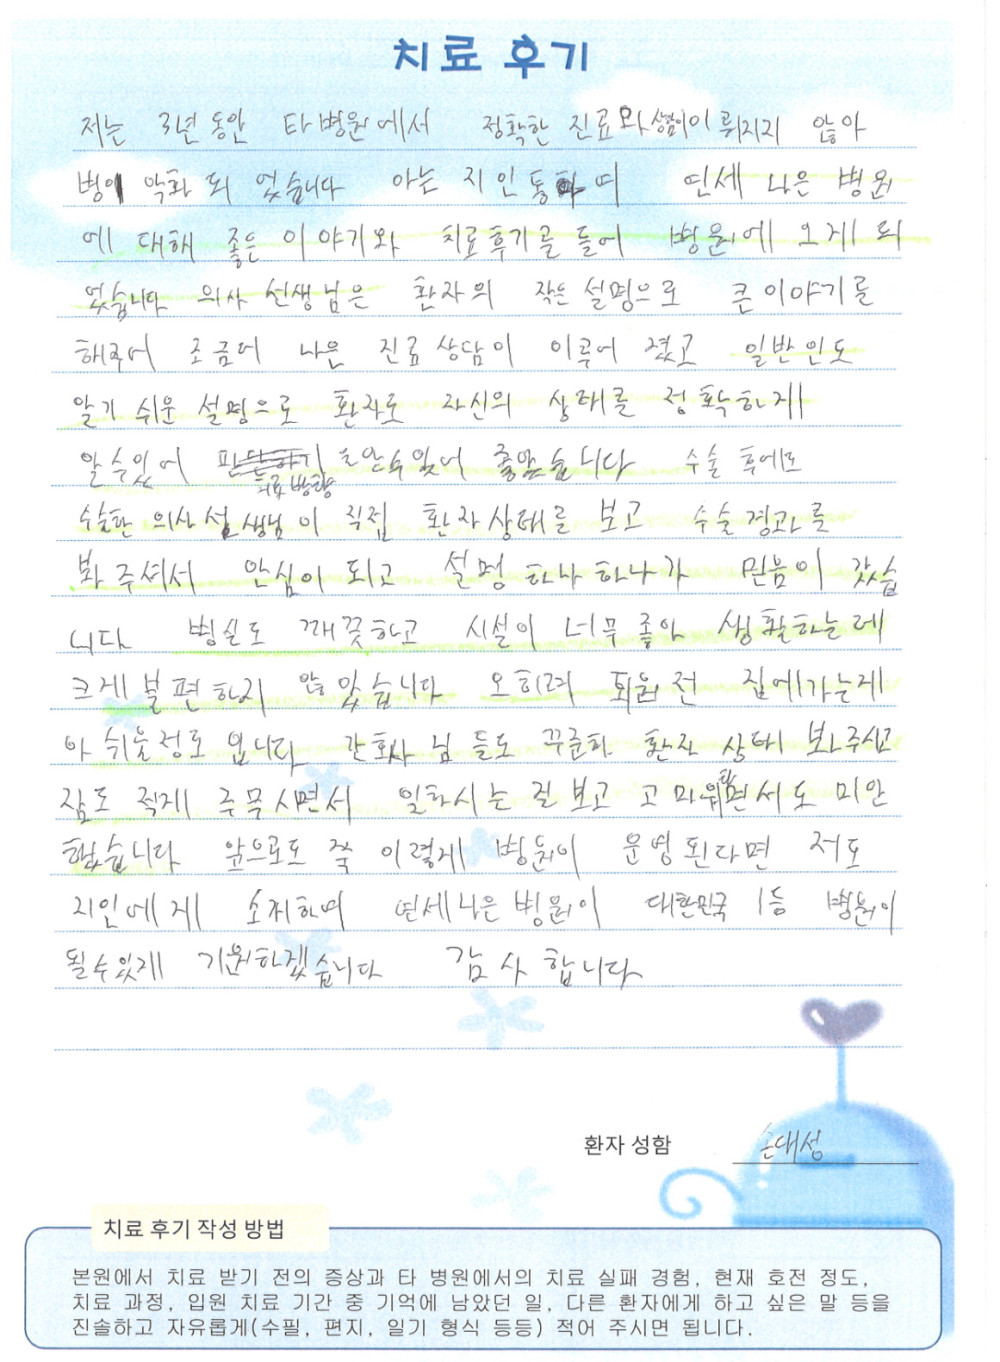 치료 후기
저는 3년 동안 타병원에서 정확한 진료와 상담이 뤄지지 않아
병이 악화 되 었습니다 아는 지인 통하여 연세 나은 병원
에 대해 좋은 이야기와 치료후기글 들어 병원에 오게 되
었습니다 의사 선생님은 환자의 작은 설명으로 큰이야기를
해주어 조금더 나은 진료 상담이 이루어 졌고 일반인도
알기 쉬운 설명으로 환자로 자신의 상태를 정확하게
알수있어 치료방향 수있어 좋았습니다 수술 후에도
수술한 의사선생님이 직접 환자상태를 보고 수술경과를
봐주셔서 안심이 되고 설명 하나하나가 믿음이 갔습
니다 병실도 깨끗하고 시설이 너무좋아 생활하는데
크게 불편하지 않았습니다 오히려 퇴원전 집에가는게
아쉬울정도 입니다 간호사님들도 꾸준히 환자 상태 봐주시고
잠도 적게 주무시면서 일하시는걸 보고 고마워하면서도 미안
했습니다 앞으로도 쭉 이렇게 병원이 운영된다면 저도
지인에게 소개하며 연세나은병원이 대한민국 1등 병원이
될수있게 기원하겠습니다 감사합니다
환자 성함 대성
치료 후기 작성 방법
본원에서 치료 받기 전의 증상과 타 병원에서의 치료 실패 경험, 현재 호전 정도,
치료 과정, 입원 치료 기간 중 기억에 남았던 일, 다른 환자에게 하고 싶은 말 등을
진솔하고 자유롭게(수필, 편지, 일기 형식 등등) 적어 주시면 됩니다.